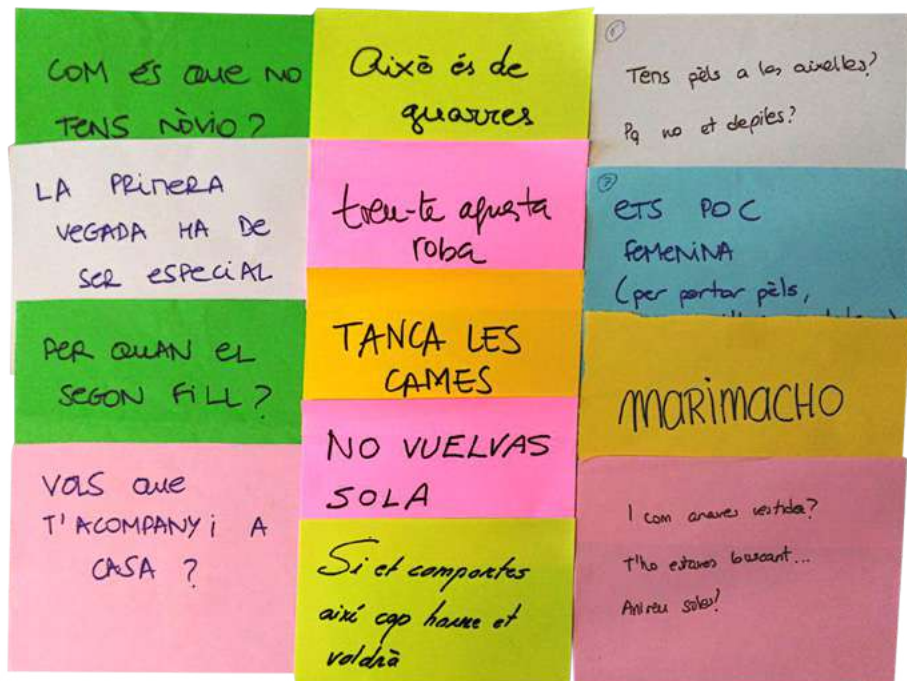 COM és que NO
TENS NÒVIO?
LA PRIMERA
VEGADA HA DE
SER ESPECIAL
PER QUAN EL
SEGON FILL?
VOLS QUE
T'ACOMPANYi A
CASA ?
Això és de
guarres
treu-te aquesta
roba
TANCA LES
CAMES
NO VUELVAS
SOLA
Si et comportes
així cap home et
voldrà
Tens pèls a les aixelles?
Pq no et depiles?
ETS POC
FEMENINA
(per portar pèls,
MARIMACHO
I com anaves vestida?
T'ho estaves buscant...
Anireu soles?